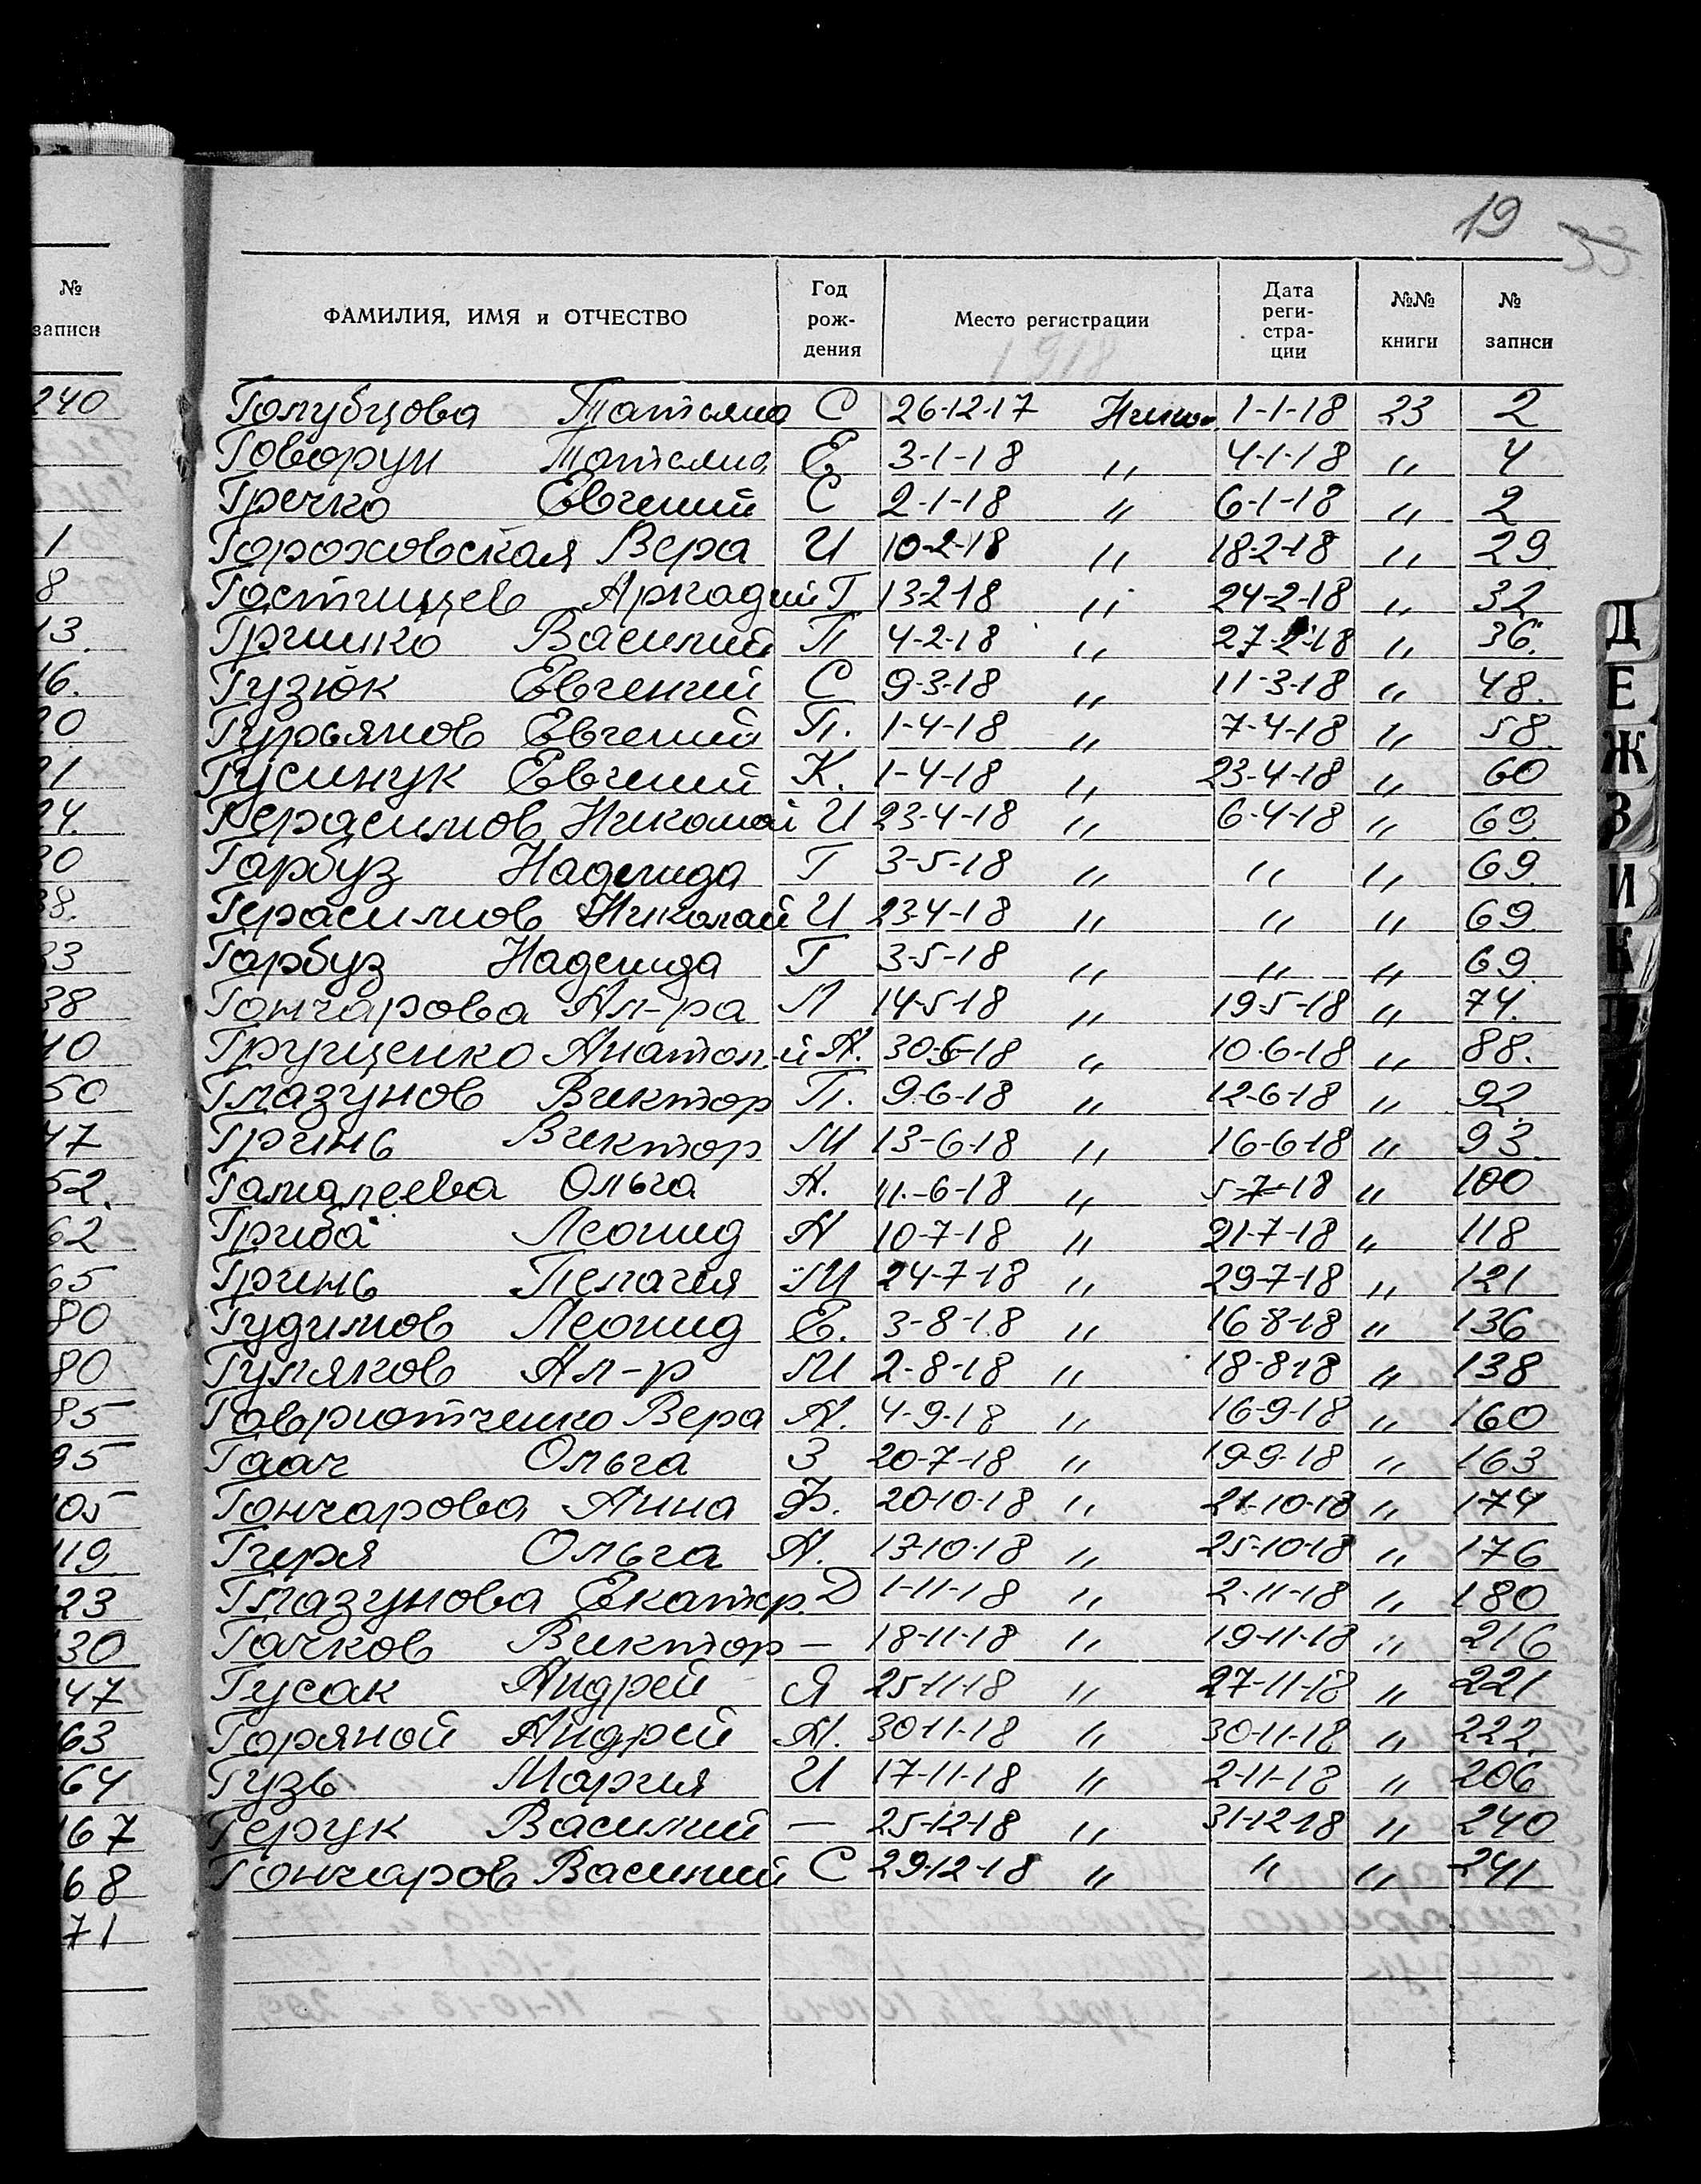 19 33
№
записи
ФАМИЛИЯ, ИМЯ и ОТЧЕСТВО
Год рож- дения
Место регистрации
Дата реги- стра- ции
№№ книги
№ записи
1918
240 Голубцова Татьяна С 26-12-17 Никол. 1-1-18 23 2
Говорун Татьяна Е 3-1-18 〃 4-1-18 〃 4
Гречко Евгений С 2-1-18 〃 6-1-18 〃 2
1 Гороховская Вера И 10-2-18 〃 18-2-18 〃 29
8 Гостищев Аркадий Г 13-2-18 〃 24-2-18 〃 32
13. Гришко Василий П 4-2-18 〃 27-2-18 〃 36.
16. Гузюк Евгений С 9-3-18 〃 11-3-18 〃 48.
20 Гурьянов Евгений П. 1-4-18 〃 7-4-18 〃 58.
21 Гусинук Евгений К. 1-4-18 〃 23-4-18 〃 60
24. Герасимов Николай И 23-4-18 〃 6-4-18 〃 69.
30 Гарбуз Надежда Г 3-5-18 〃 〃 〃 69.
38. Герасимов Николай И 23-4-18 〃 〃 〃 69.
33 Гарбуз Надежда Г 3-5-18 〃 〃 〃 69
38 Гончарова Ал-ра Л 14-5-18 〃 19-5-18 〃 74.
40 Грущенко Анатол.й А. 30-5-18 〃 10-6-18 〃 88.
50 Глазунов Виктор П. 9-6-18 〃 12-6-18 〃 92.
47 Гринь Виктор М 13-6-18 〃 16-6-18 〃 93.
52. Гамалеева Ольга А. 11.-6-18 〃 5-7-18 〃 100
62 Гриба Леонид А 10-7-18 〃 21-7-18 〃 118
65 Гринь Пелагия М 24-7-18 〃 29-7-18 〃 121
80 Гудимов Леонид Е. 3-8-18 〃 16-8-18 〃 136
80 Гуляков Ал-р М 2-8-18 〃 18-8-18 〃 138
85 Вера А. 4-9-18 〃 16-9-18 〃 160
95 Гаач Ольга З 20-7-18 〃 19-9-18 〃 163
105 Гончарова Анна Ф. 20-10-18 〃 21-10-18 〃 174
119 Ольга А. 13-10-18 〃 25-10-18 〃 176
123 Глазунова Екатер. Д 1-11-18 〃 2-11-18 〃 180
130 Гачков Виктор — 18-11-18 〃 19-11-18 〃 216
147 Гусак Андрей Я 25-11-18 〃 27-11-18 〃 221
163 Горяной Андрей А. 30-11-18 〃 30-11-18 〃 222
164 Гузь Мария И 17-11-18 〃 2-11-18 〃 206
167 Герук Василий — 25-12-18 〃 31-12-18 〃 240
168 Гончаров Василий С 29-12-18 〃 〃 〃 241
171
Д
Е
Ж
З
И
К